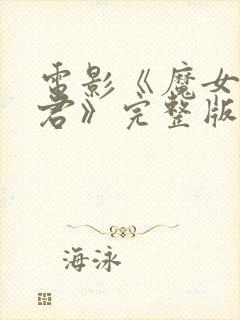 电影《魔女
君》完整版
海泳